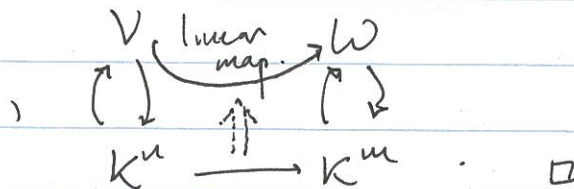 V linear W
map.
,
K^n K^m . □